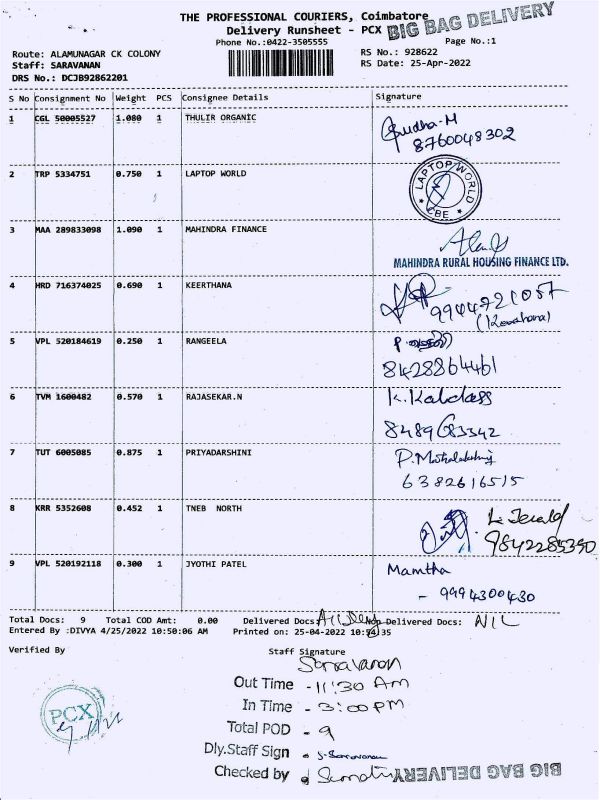 THE PROFESSIONAL COURIERS, Coimbatore
BIG BAG DELIVERY
Delivery Runsheet - PCX
Phone No.:0422-3505555
Page No.:1
Route: ALAMUNAGAR CK COLONY
RS No.: 928622
Staff: SARAVANAN
RS Date: 25-Apr-2022
DRS No.: DCJB92862201
S No Consignment No Weight PCS Consignee Details Signature
1 CGL 50005527 1.080 1 THULIR ORGANIC
8760048302
2 TRP 5334751 0.750 1 LAPTOP WORLD
LAPTOP WORLD
CBE
3 MAA 289833098 1.090 1 MAHINDRA FINANCE
MAHINDRA RURAL HOUSING FINANCE LTD.
4 HRD 716374025 0.690 1 KEERTHANA
9944721057
5 VPL 520184619 0.250 1 RANGEELA
8428864461
6 TVM 1600482 0.570 1 RAJASEKAR.N
K. Kaldass
8489683342
7 TUT 6005085 0.875 1 PRIYADARSHINI
6382616515
8 KRR 5352608 0.452 1 TNEB NORTH
L. Jerald
9842285390
9 VPL 520192118 0.300 1 JYOTHI PATEL
Mamtha
- 9994300430
Total Docs: 9 Total COD Amt: 0.00 Delivered Docs: Non Delivered Docs: NIL
Entered By :DIVYA 4/25/2022 10:50:06 AM Printed on: 25-04-2022 10:54:35
Verified By Staff Signature
Saravanan
Out Time - 11:30 Am
In Time - 3:00 PM
Total POD - 9
PCX
Dly.Staff Sign - S. Saravanan
Checked by
BIG BAG DELIVERY